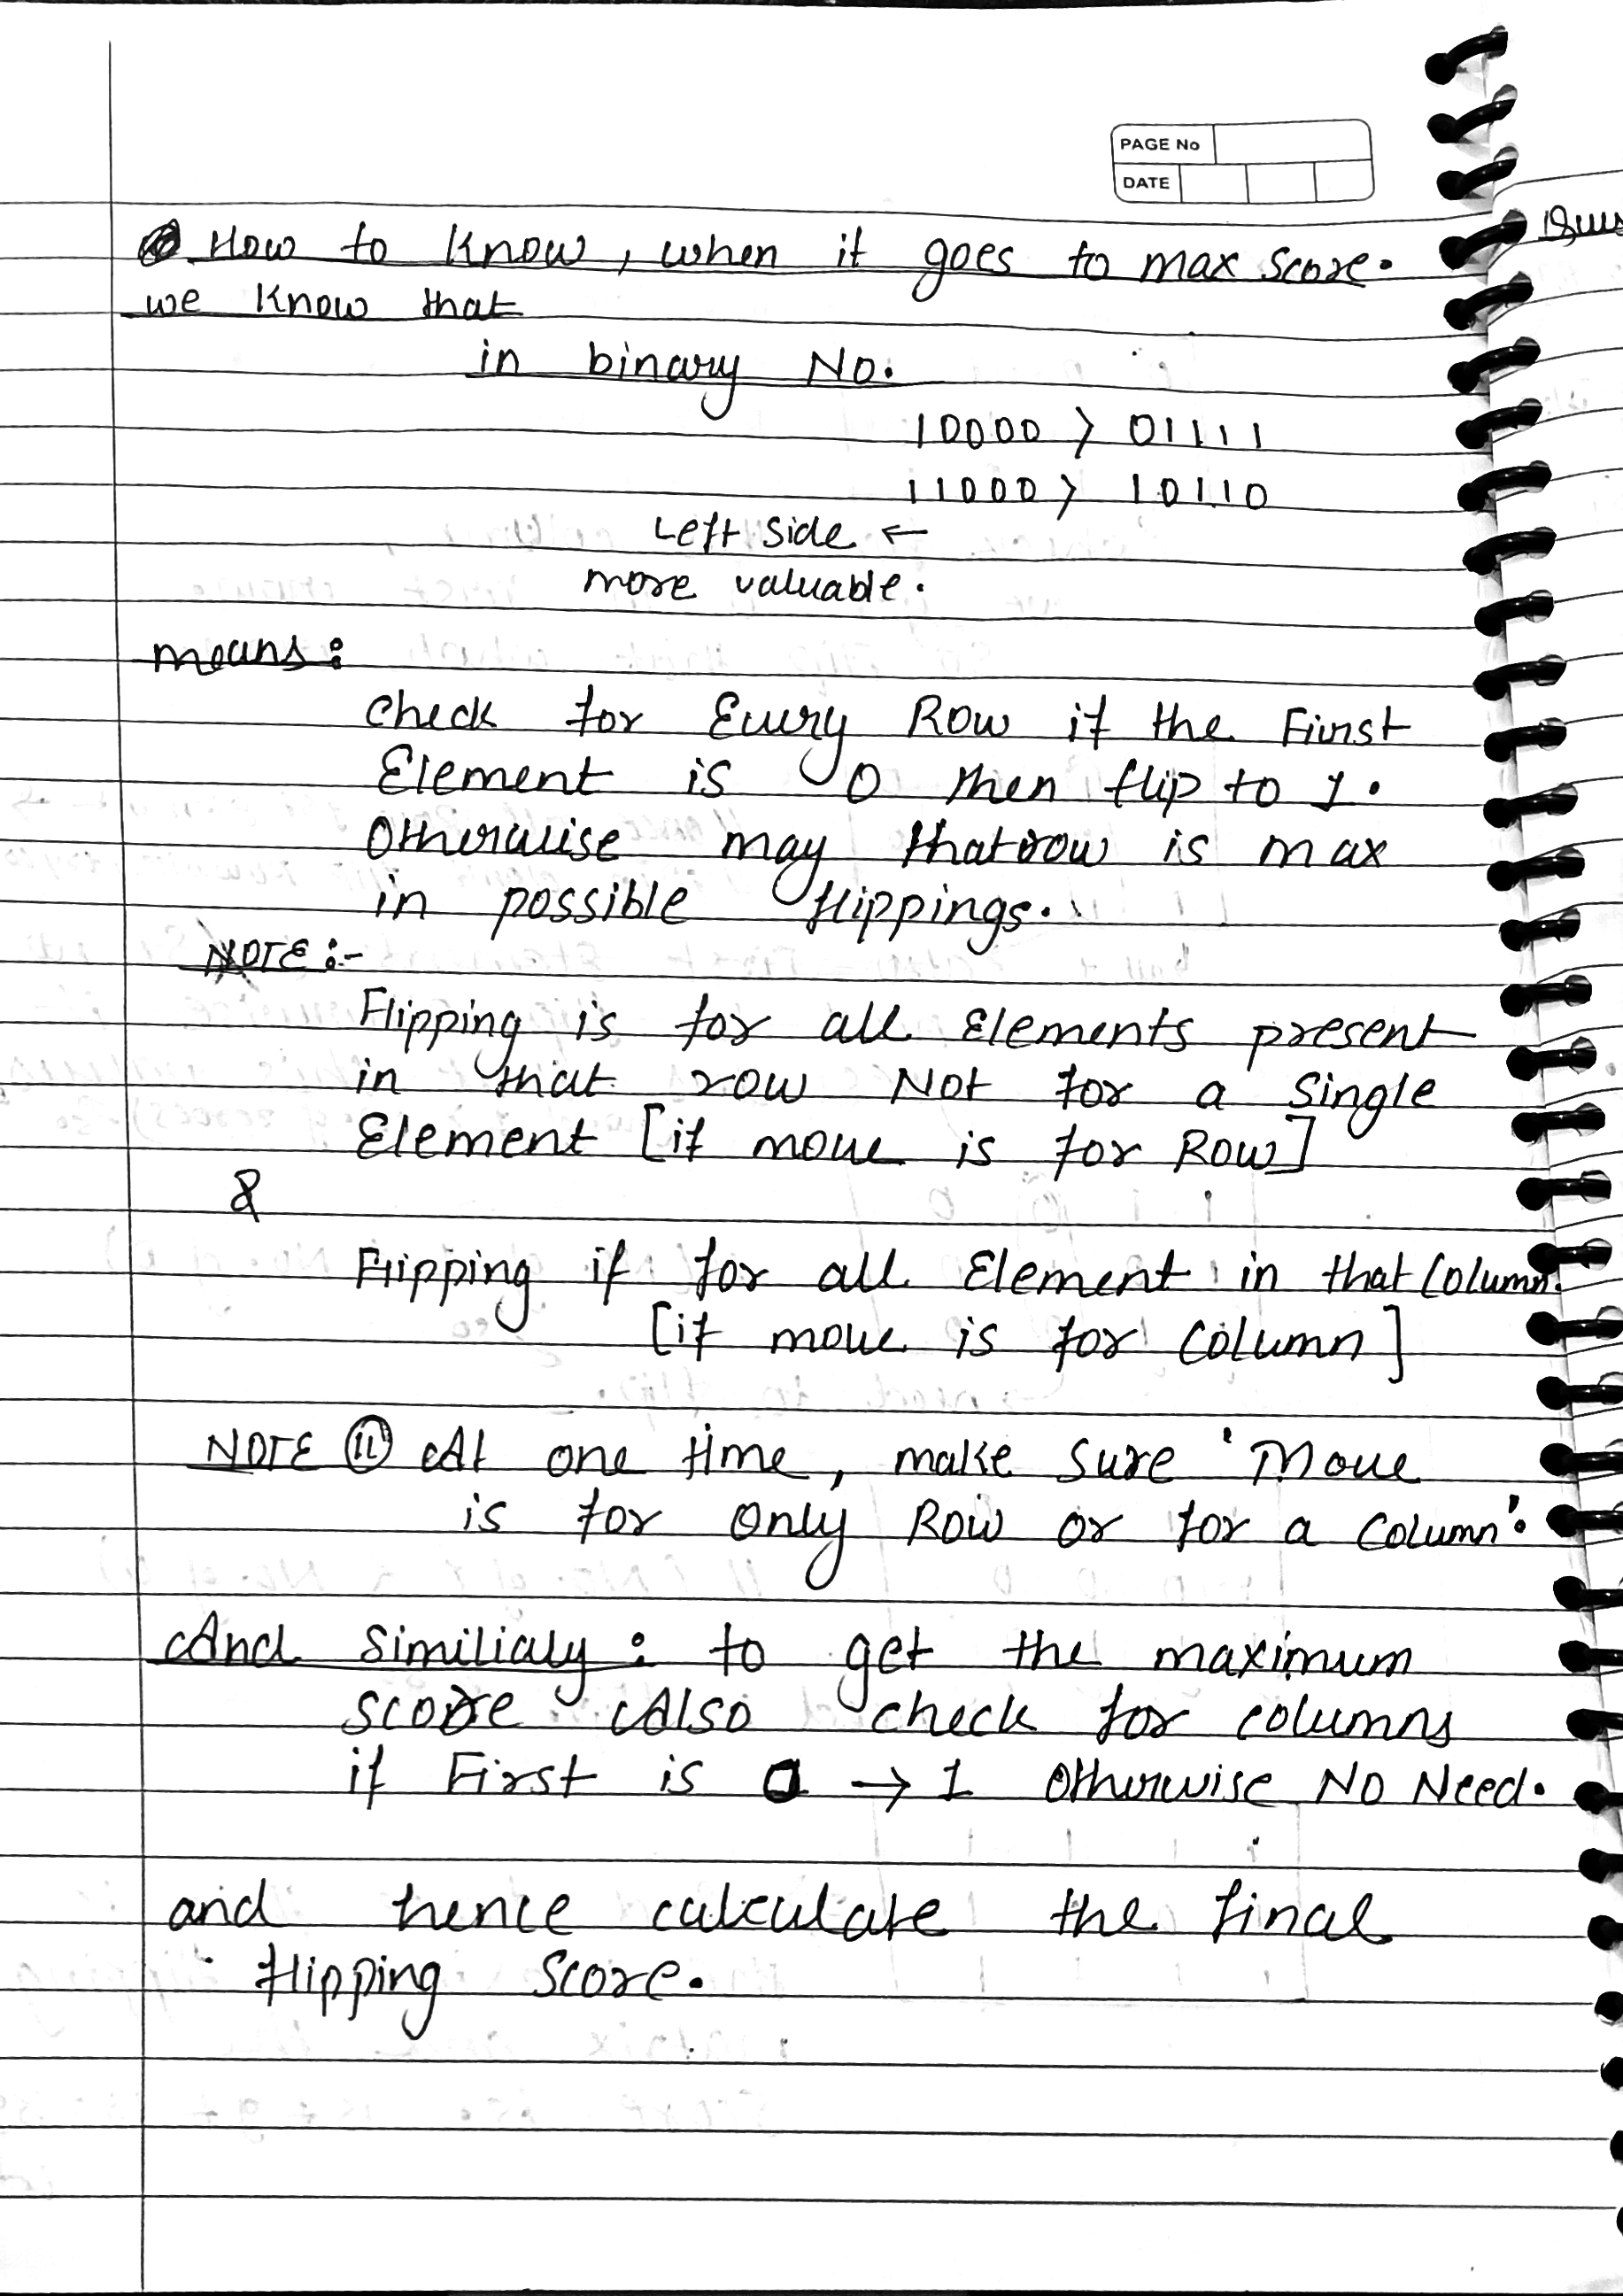 PAGE No
DATE
How to know, when it goes to max score.
we know that
in binary No.
10000 > 01111
11000 > 10110
Left side ←
more valuable.
means:
check for Every Row if the First
Element is 0 then flip to 1.
Otherwise may that row is max
in possible flippings.
NOTE :-
Flipping is for all Elements present
in that row Not for a Single
Element [if move is for Row]
&
Flipping if for all Element in that Column.
[if move is for Column]
NOTE (II) At one time, make sure 'Move
is for only Row or for a Column'.
And Similialy : to get the maximum
score Also check for columns
if First is 0 → 1 Otherwise No Need.
and hence calculate the final
flipping Score.